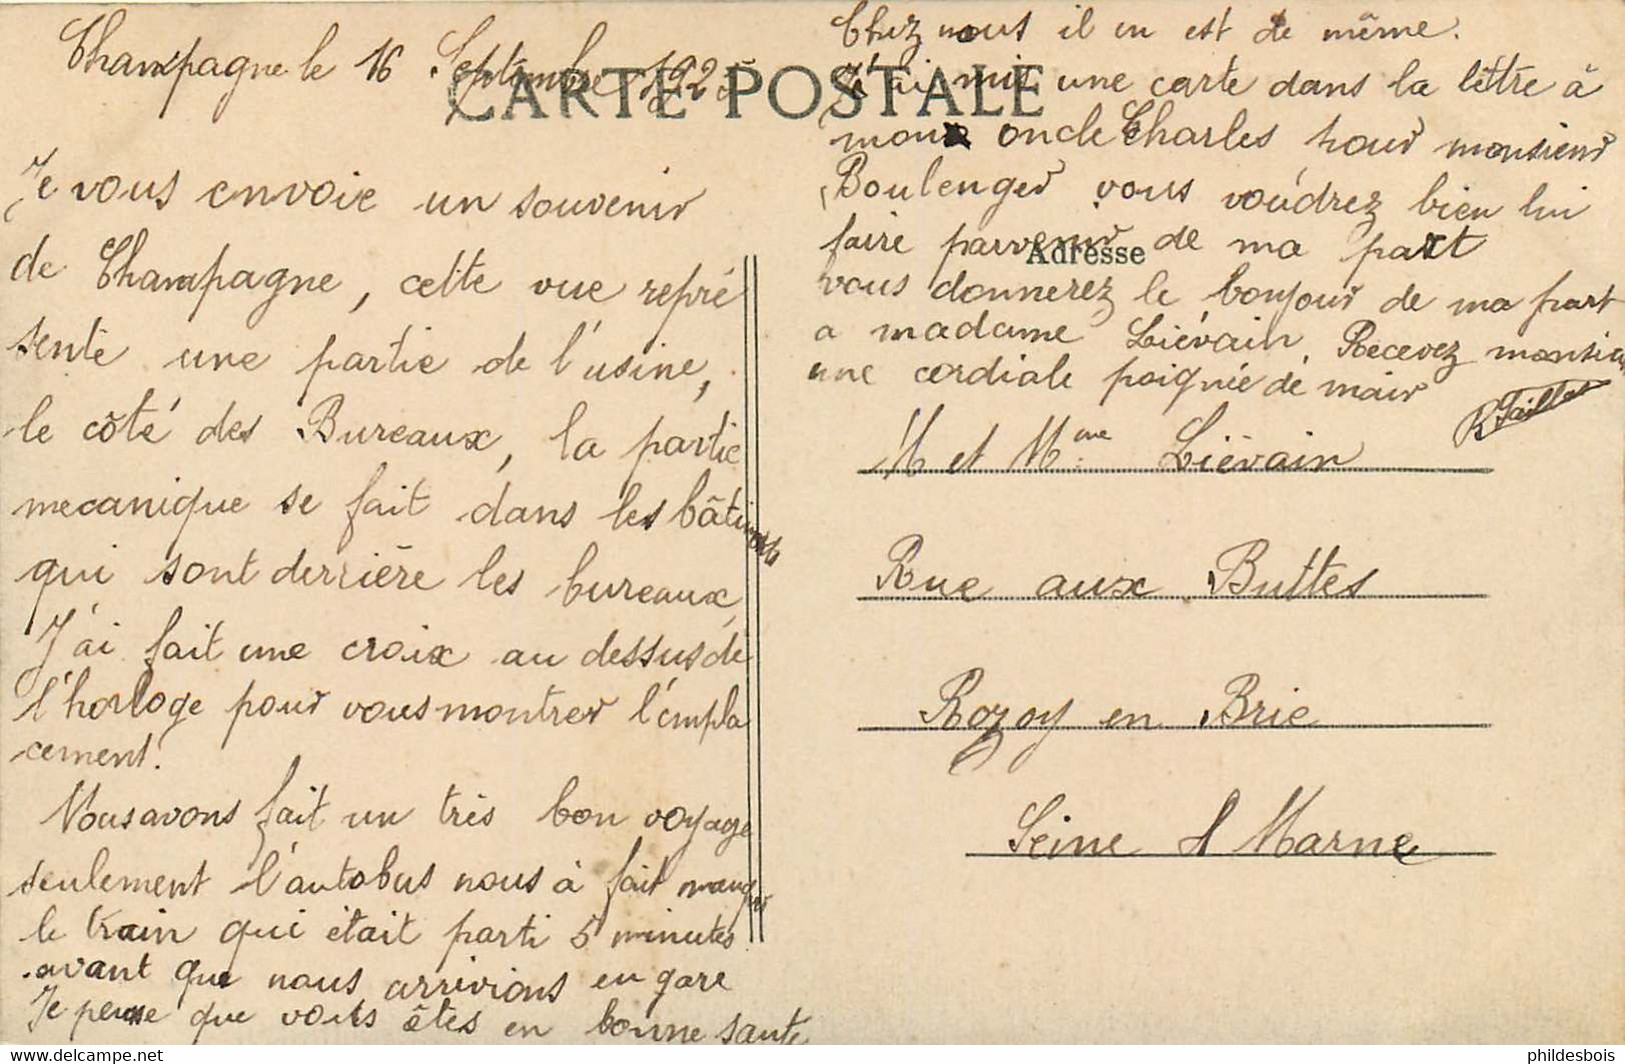 Champagne le 16 Septembre 1925
CARTE POSTALE
Je vous envoie un souvenir
de Champagne, cette vue repré
sente une partie de l'usine,
le côté des Bureaux, la partie
mecanique se fait dans les bâtiments
qui sont derrière les bureaux,
J'ai fait une croix au dessus de
l'horloge pour vous montrer l'empla
cement.
Nous avons fait un très bon voyage
seulement l'autobus nous à fait manquer
le train qui était parti 5 minutes
avant que nous arrivions en gare
Je pense que vous êtes en bonne sante
Chez nous il en est de même.
J'ai mis une carte dans la lettre à
mon oncle Charles pour monsieur
Boulenger vous voudrez bien lui
faire parvenir de ma part
Adresse
vous donnerez le bonjour de ma part
a madame Liévain. Recevez monsieur
une cordiale poignée de main
R Taillet
M et Mme Liévain
Rue aux Buttes
Rozoy en Brie
Seine et Marne
http://www.delcampe.net
phildesbois